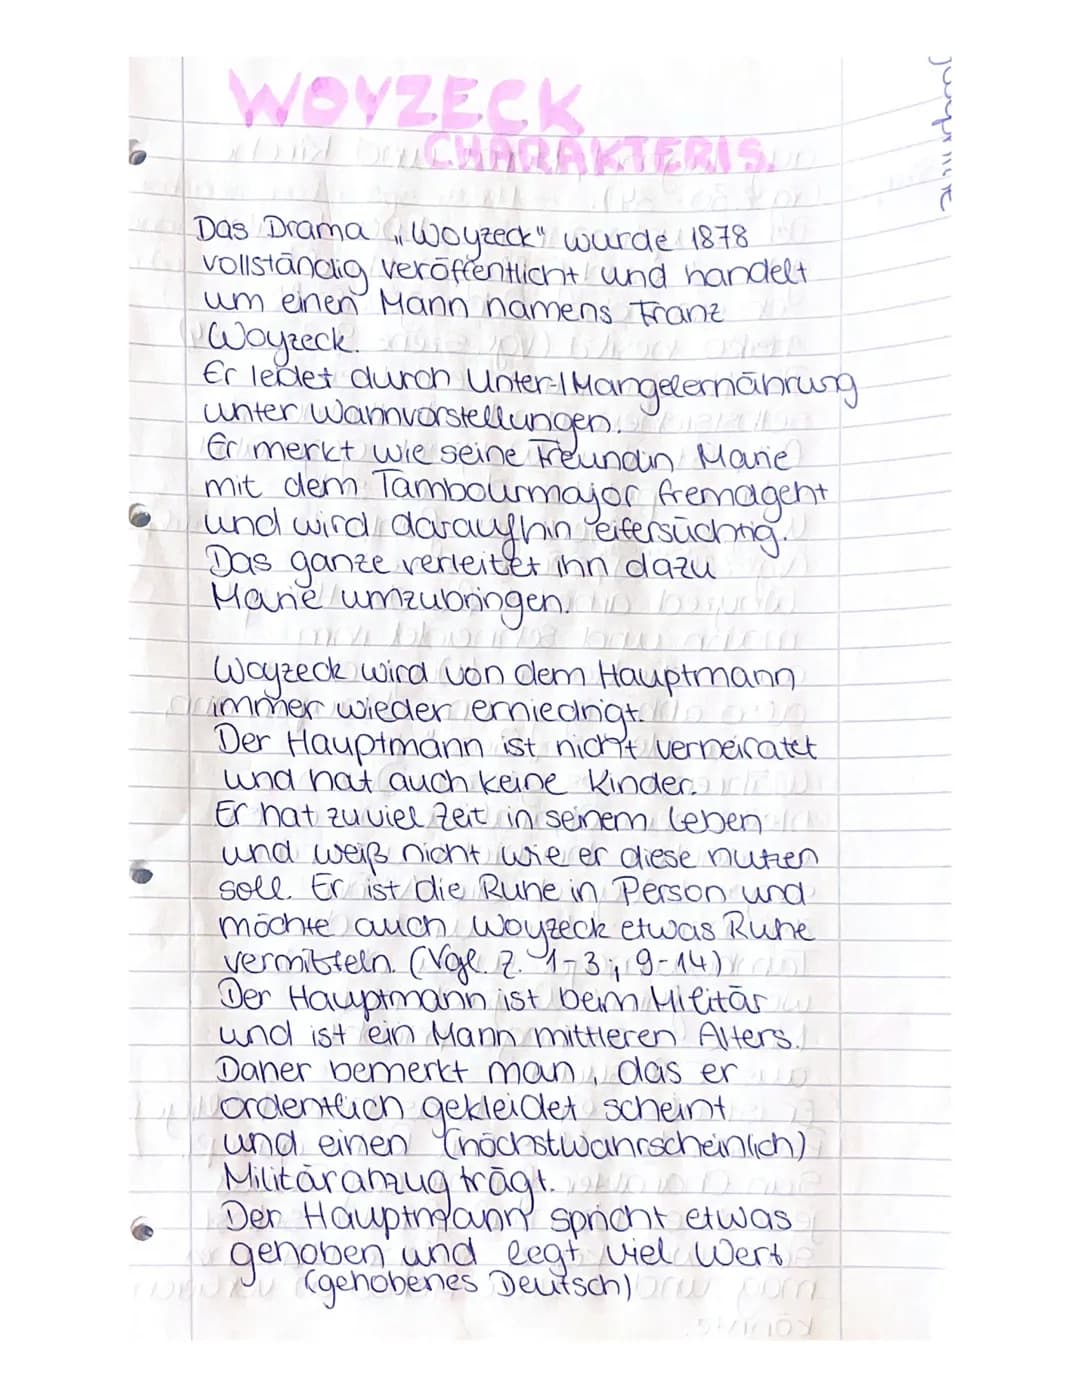 WOYZECK
CHARAKTERIS.
Das Drama „Woyzeck" wurde 1878
vollständig veröffentlicht und handelt
um einen Mann namens Franz
Woyzeck.
Er leidet durch Unter-/Mangelernährung
unter Wahnvorstellungen.
Er merkt wie seine Freundin Marie
mit dem Tambourmajor fremdgeht
und wird daraufhin eifersüchtig.
Das ganze verleitet ihn dazu
Marie umzubringen.
Woyzeck wird von dem Hauptmann
immer wieder erniedrigt.
Der Hauptmann ist nicht verheiratet
und hat auch keine Kinder.
Er hat zu viel Zeit in seinem Leben
und weiß nicht wie er diese nutzen
soll. Er ist die Ruhe in Person und
möchte auch Woyzeck etwas Ruhe
vermitteln. (Vgl. Z. 1-3; 9-14)
Der Hauptmann ist beim Militär
und ist ein Mann mittleren Alters.
Daher bemerkt man, das er
ordentlich gekleidet scheint
und einen (höchstwahrscheinlich)
Militäranzug trägt.
Der Hauptmann spricht etwas
gehoben und legt viel Wert
(gehobenes Deutsch)